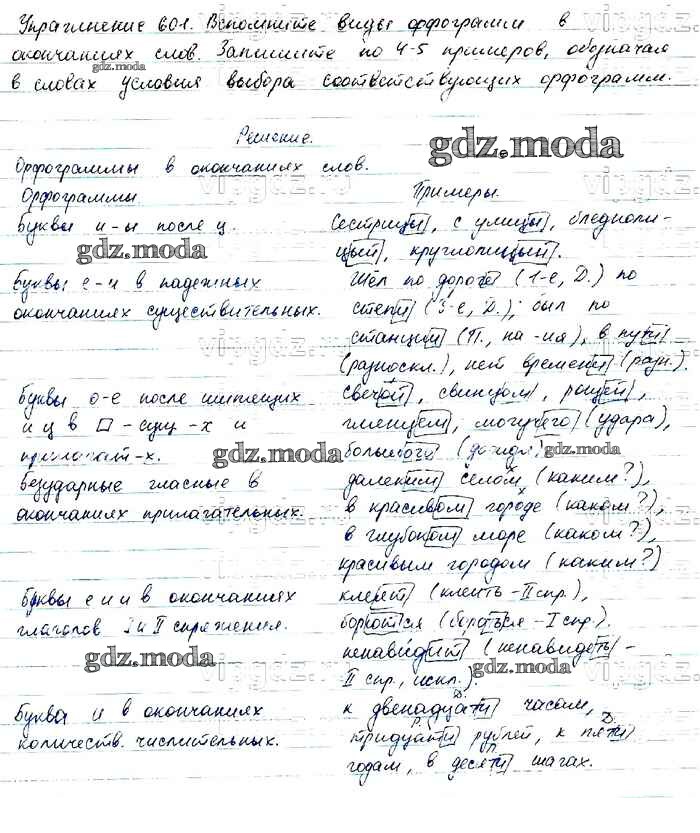 Упражнение 601. Вспомните виды орфограмм в
окончаниях слов. Запишите по 4-5 примеров, обозначая
в словах условия выбора соответствующих орфограмм.
gdz.moda
Решение.
gdz.moda
Орфограммы в окончаниях слов.
Орфограммы Примеры.
Буквы и-ы после ц. Сестрицы, с улицы, бледноли-
gdz.moda цый, круглолицый.
Буквы е-и в падежных Шёл по дороге (1-е, Д.) по
окончаниях существительных. степи (3-е, Д.); был по
станции (П., на -ия), в пути
(разноскл.), нет времени (разн.).
Буквы о-е после шипящих свечой, свинцом, рощей,
и ц в □ -сущ-х и пленцем, могучего (удара),
gdz.moda
прилагат-х. большого
Безударные гласные в далеким селом (каким?),
окончаниях прилагательных. в красивом городе (каком?),
в глубоком море (каком?)
красивым городом (каким?)
Буквы е и и в окончаниях клеит (клеить -II спр.),
глаголов I и II спряжения. борются (бороться -I спр.).
gdz.moda ненавидит (ненавидеть-
II спр., искл.).
Буква и в окончаниях к двенадцати часам,
количеств. числительных. тридцати рублей, к пяти
годам, в десяти шагах.